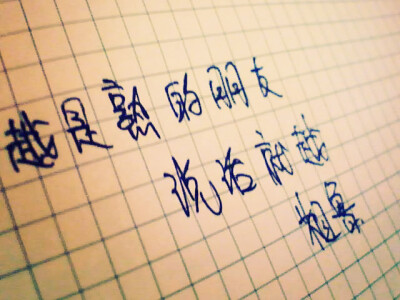 越是熟的朋友
说话就越
粗暴